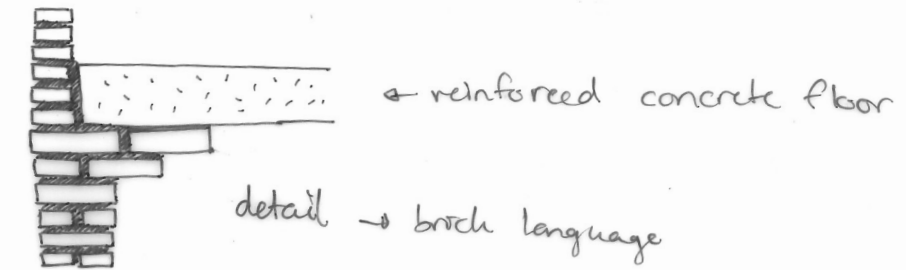 ← reinforced concrete floor
detail → brick language